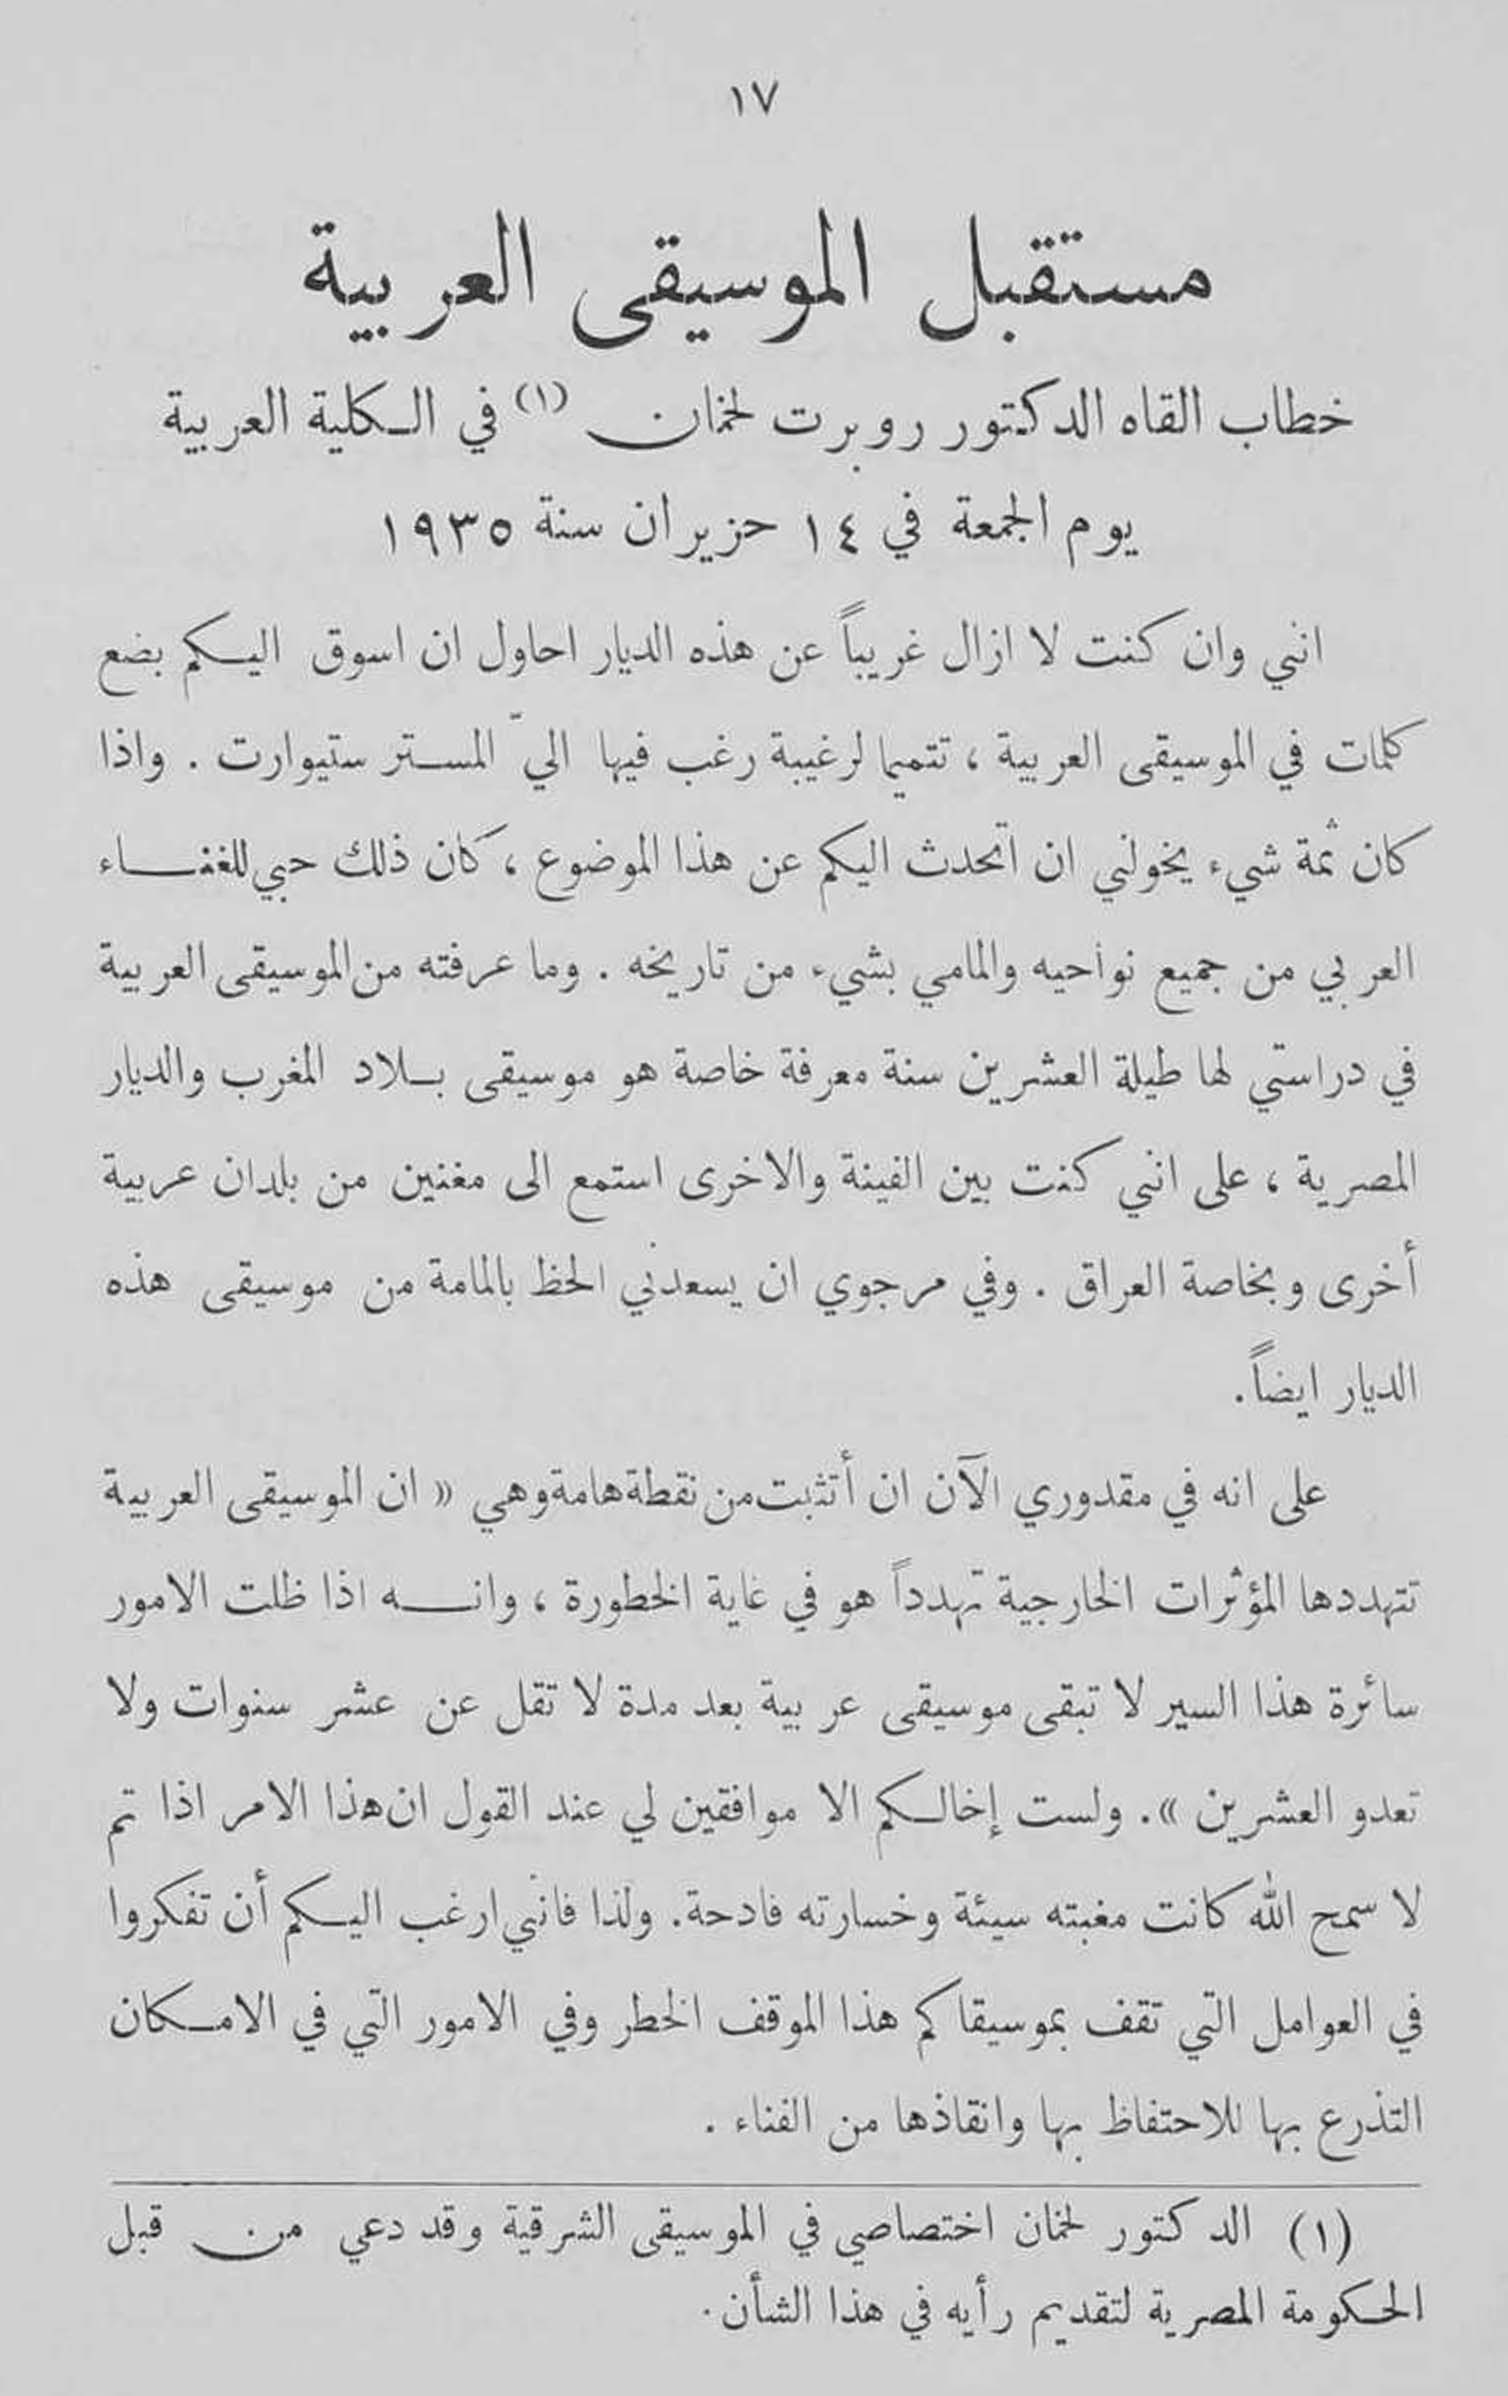 ١٧
مستقبل الموسيقى العربية
خطاب القاه الدكتور روبرت لخمان (١) في الكلية العربية
يوم الجمعة في ١٤ حزيران سنة ١٩٣٥
انني وان كنت لا ازال غريباً عن هذه الديار احاول ان اسوق اليكم بضع
كلمات في الموسيقى العربية ، تتميما لرغيبة رغب فيها اليّ المستر ستيوارت . واذا
كان ثمة شيء يخولني ان اتحدث اليكم عن هذا الموضوع ، كان ذلك حبي للغناء
العربي من جميع نواحيه والمامي بشيء من تاريخه . وما عرفته من الموسيقى العربية
في دراستي لها طيلة العشرين سنة معرفة خاصة هو موسيقى بلاد المغرب والديار
المصرية ، على انني كنت بين الفينة والاخرى استمع الى مغنين من بلدان عربية
أخرى وبخاصة العراق . وفي مرجوي ان يسعدني الحظ بالمامة من موسيقى هذه
الديار ايضاً .
على انه في مقدوري الآن ان أتثبت من نقطة هامة وهي « ان الموسيقى العربية
تتهددها المؤثرات الخارجية تهدداً هو في غاية الخطورة ، وانه اذا ظلت الامور
سائرة هذا السير لا تبقى موسيقى عربية بعد مدة لا تقل عن عشر سنوات ولا
تعدو العشرين » . ولست إخالكم الا موافقين لي عند القول ان هذا الامر اذا تم
لا سمح الله كانت مغبته سيئة وخسارته فادحة . ولذا فانني ارغب اليكم أن تفكروا
في العوامل التي تقف بموسيقاكم هذا الموقف الخطر وفي الامور التي في الامكان
التذرع بها للاحتفاظ بها وانقاذها من الفناء .
(١) الدكتور لخمان اختصاصي في الموسيقى الشرقية وقد دعي من قبل
الحكومة المصرية لتقديم رأيه في هذا الشأن .